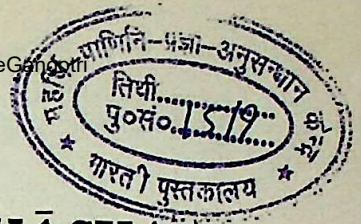 eGangotri
महर्षि पाणिनि-प्रज्ञा-अनुसन्धान केन्द्र
तिथी..............
पु०सं०.1517..........
★ भारती पुस्तकालय ★